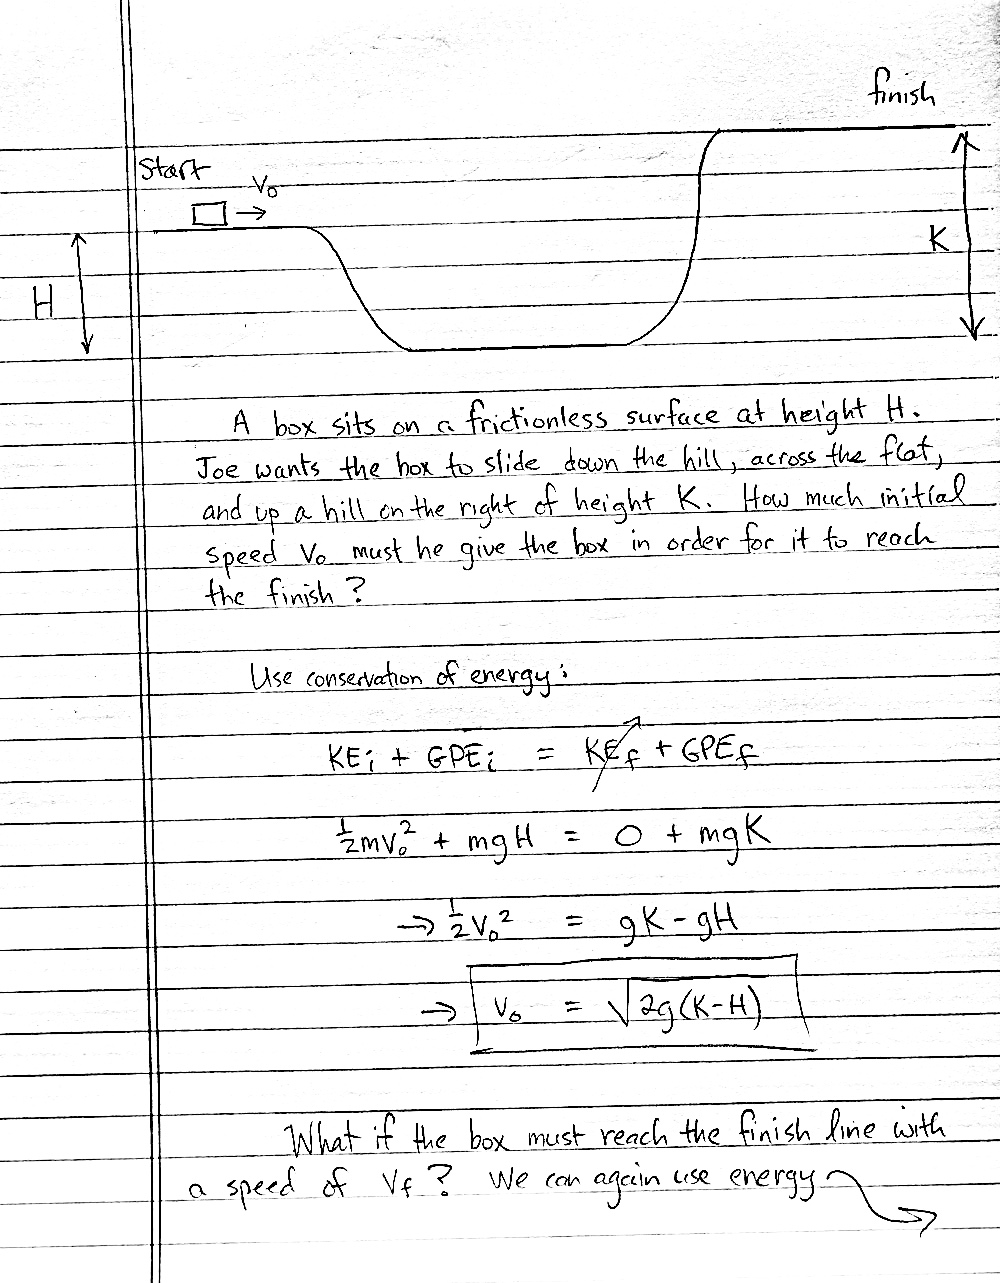 finish
Start
V₀
H
K
A box sits on a frictionless surface at height H.
Joe wants the box to slide down the hill, across the flat,
and up a hill on the right of height K. How much initial
speed V₀ must he give the box in order for it to reach
the finish?
Use conservation of energy:
KEᵢ + GPEᵢ = KE_f + GPE_f
½mv₀² + mgH = 0 + mgK
→ ½V₀² = gK - gH
→ V₀ = √2g(K-H)
What if the box must reach the finish line with
a speed of V_f? We can again use energy